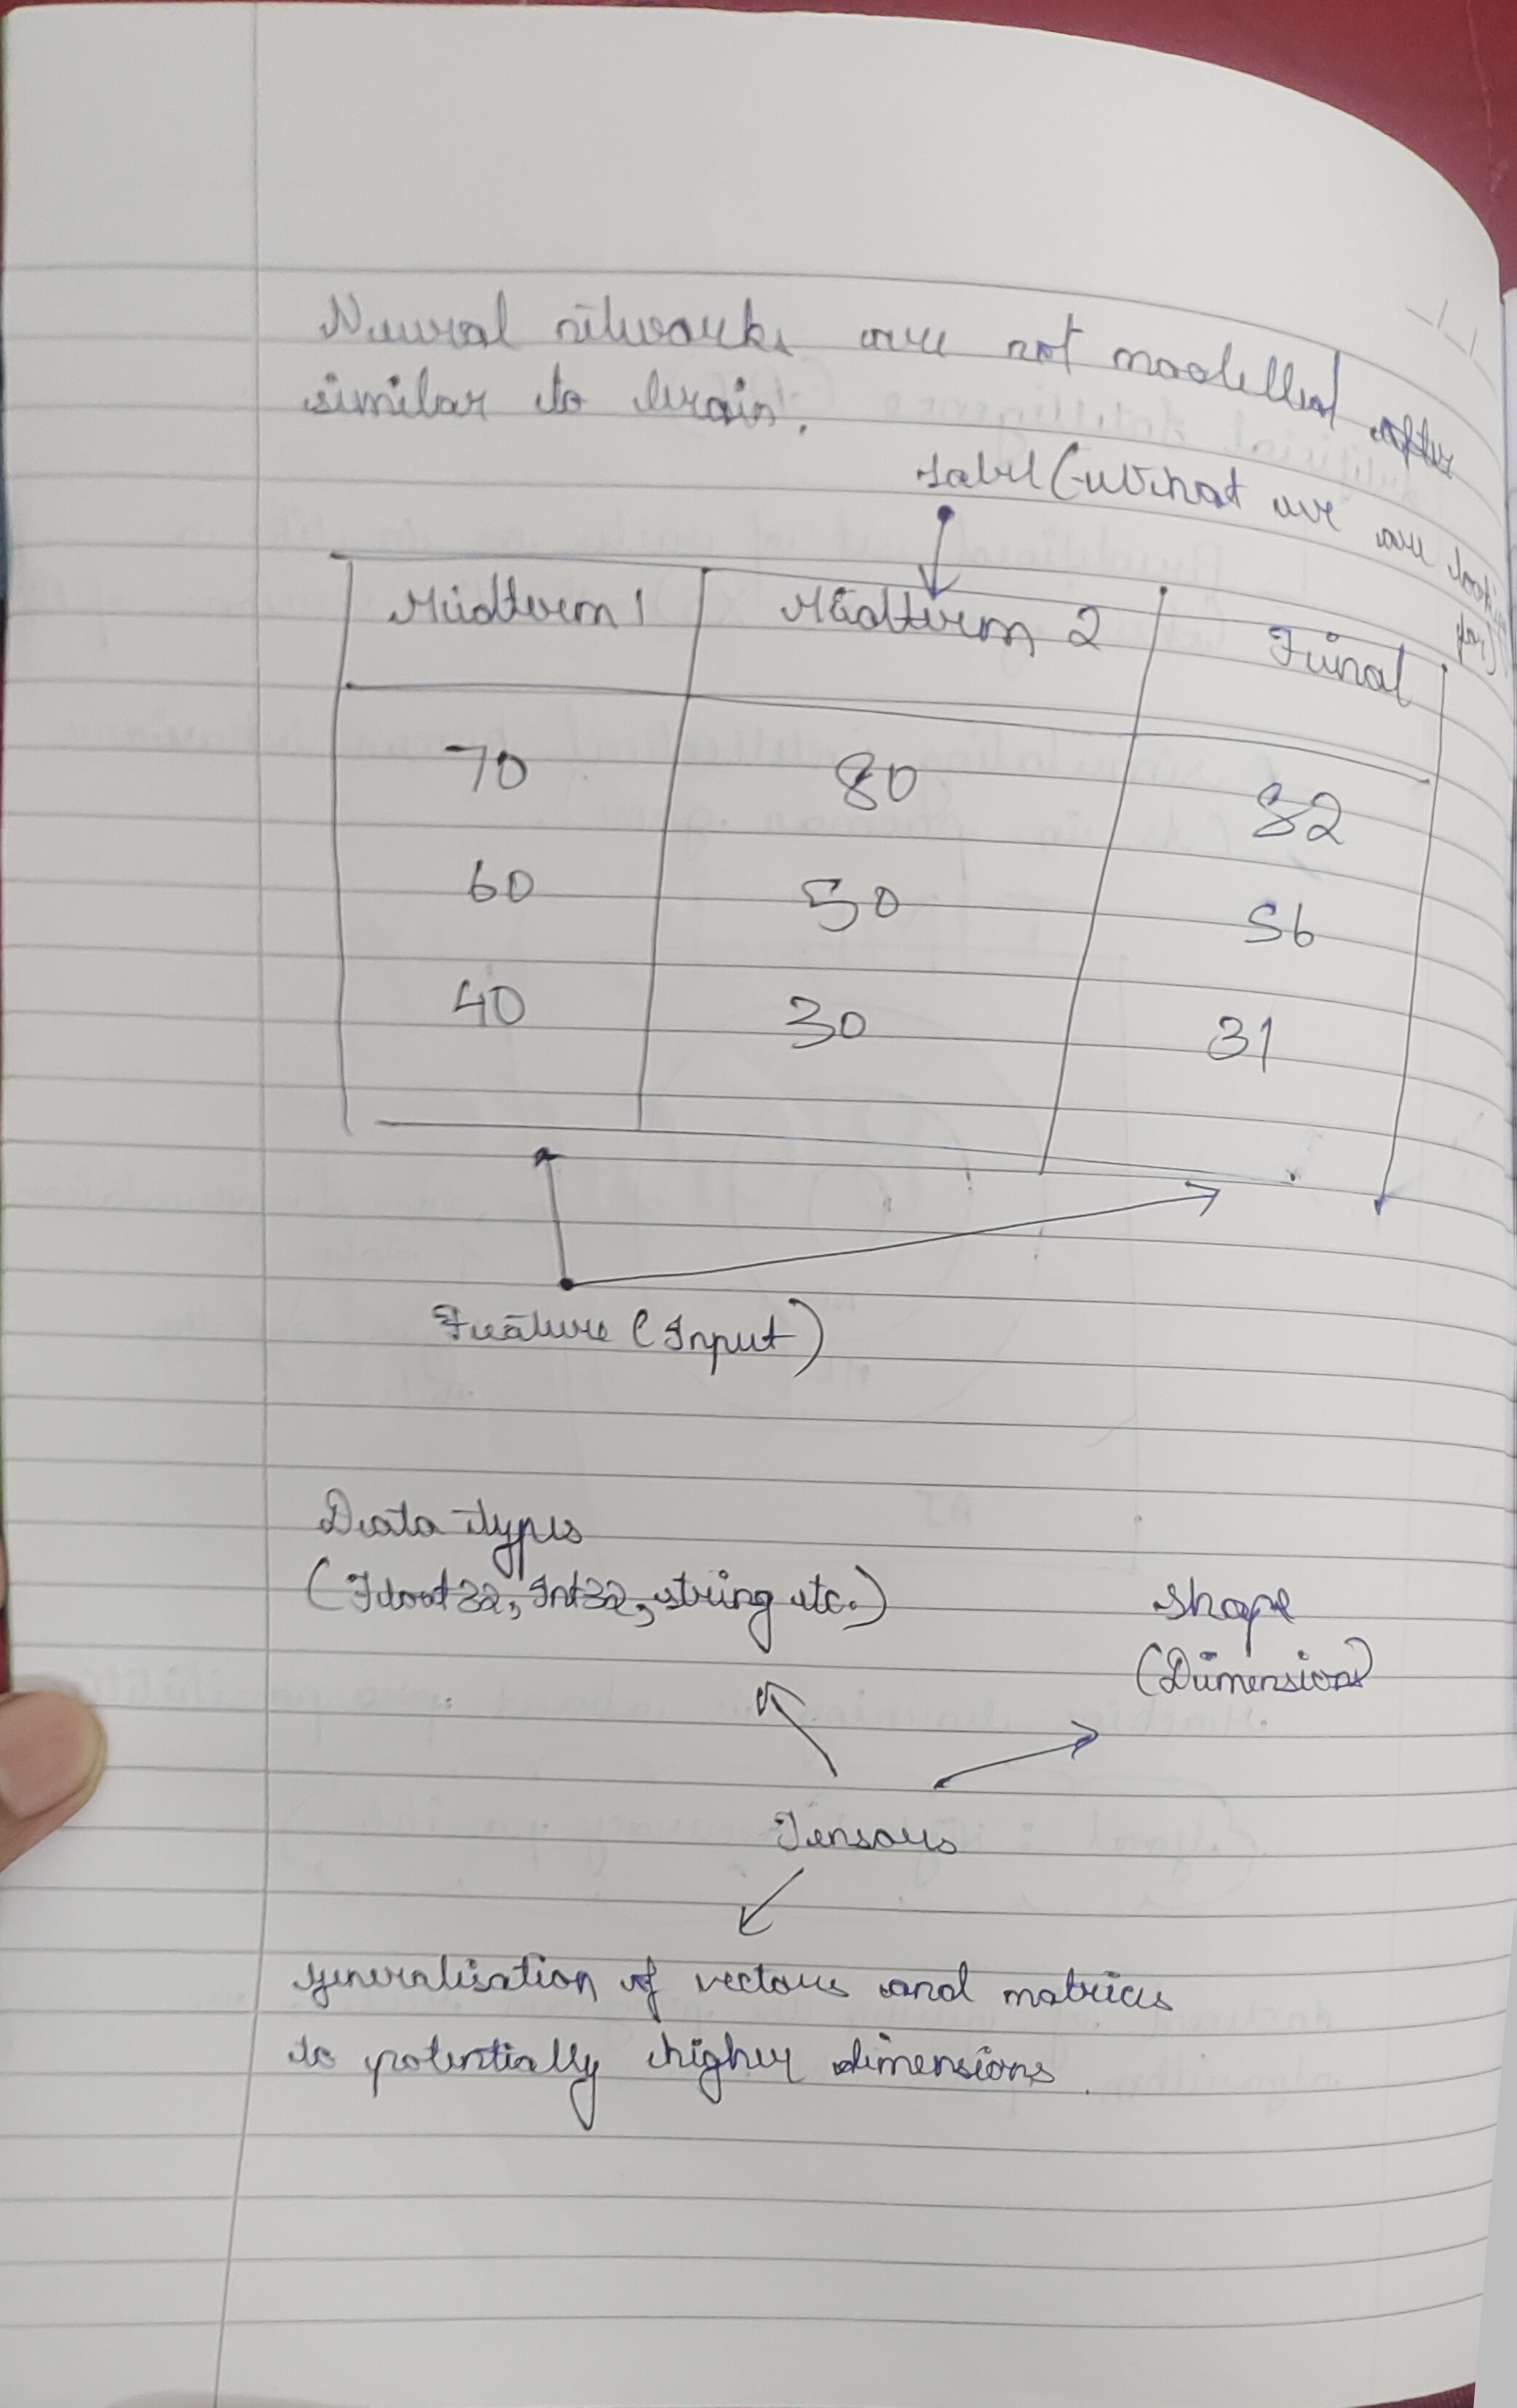 Neural networks are not modelled after
similar to brain.
Label (what we are looking
for)
Midterm 1 Midterm 2 Final
70 80 82
60 50 56
40 30 31
Feature (Input)
Data types
(Float32, Int32, string etc.)
Shape
(Dimension)
Tensors
generalisation of vectors and matrices
to potentially higher dimensions.